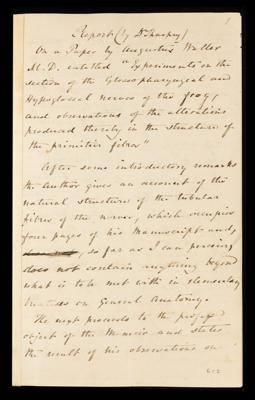 1
Report (by Dr Sharpey)
On a Paper by Augustus Waller
M.D. entitled "Experiments on the
section of the Glossopharyngeal and
Hypoglossal nerves of the frog,
and observations of the alterations
produced thereby in the structure of
the primitive fibres"
After some introductory remarks
the Author gives an account of the
natural structure of the tubular
fibres of the nerves, which occupies
four pages of his Manuscript and,
, so far as I can perceive,
does not contain anything beyond
what is to be met with in elementary
treatises on General Anatomy.
He next proceeds to the proper
object of the Memoir and states
the result of his observations on